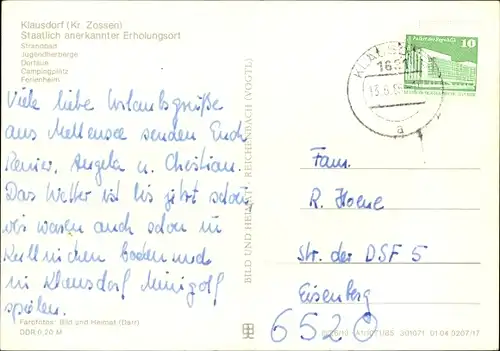 Klausdorf (Kr. Zossen)
Staatlich anerkannter Erholungsort
Strandbad
Jugendherberge
Dorfaue
Campingplatz
Ferienheim
Viele liebe Urlaubsgrüße
aus Mellensee senden Euch
Angela u. Christian.
Das Wetter ist bis jetzt schön
wir waren auch schon in
baden und
in Klausdorf Minigolf
spielen.
Farbfotos: Bild und Heimat (Darr)
DDR 0,20 M
BILD UND HEIMAT REICHENBACH (VOGTL)
10
KLAUSD
1631
a
Fam.
R.
Str. der DSF 5
Eisenberg
6520
01 04 0207/17